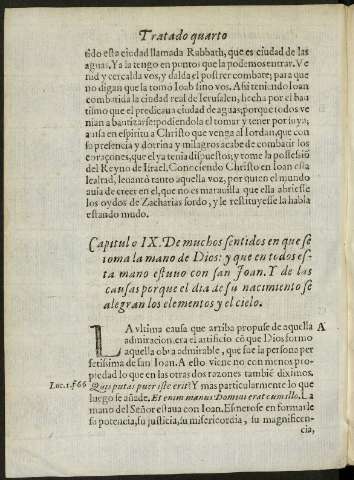 Tratado quarto
tido esta ciudad llamada Rabbath, que es ciudad de las
aguas. Ya la tengo en puntos que la podemos entrar. Ve
nid y cercalda vos, y dalda el postrer combate; para que
no digan que la tomo Ioab sino vos. Assi teniendo Ioan
combatida la ciudad real de Ierusalen, hecha por el bau
tismo que el predicaua ciudad de aguas; porque todos ve
nian a bautizarse: podiendola el tomar y tener por suya;
auisa en espiritu a Christo que venga al Iordan, que con
su presencia y dotrina y milagros acabe de combatir los
coraçones, que el ya tenia dispuestos; y tome la possessiõ
del Reyno de Israel. Conosciendo Christo en Ioan esta
lealtad, leuantò tanto aquella voz, por quien el mundo
auia de creer en el, que no es marauilla que ella abriesse
los oydos de Zacharias sordo, y le restituyesse la habla
estando mudo.
Capitulo IX. De muchos sentidos en que se
toma la mano de Dios: y que en todos es-
ta mano estuuo con san Joan. Y de las
causas porque el dia de su nacimiento se
alegran los elementos y el cielo.
LA vltima causa que arriba propuse de aquella
A
admiracion, era el artificio cõ que Dios formo
aquella obra admirable, que fue la persona per
fetissima de san Ioan. A esto viene no con menos pro-
piedad lo que en las otras dos razones tambiẽ diximos.
Luc. 1. f66
Quis putas puer iste erit? Y mas particularmente lo que
luego se añade. Et enim manus Domini erat cum illo. La
mano del Señor estaua con Ioan. Esmerose en formarle
su potencia, su justicia, su misericordia, su magnificen-
cia,